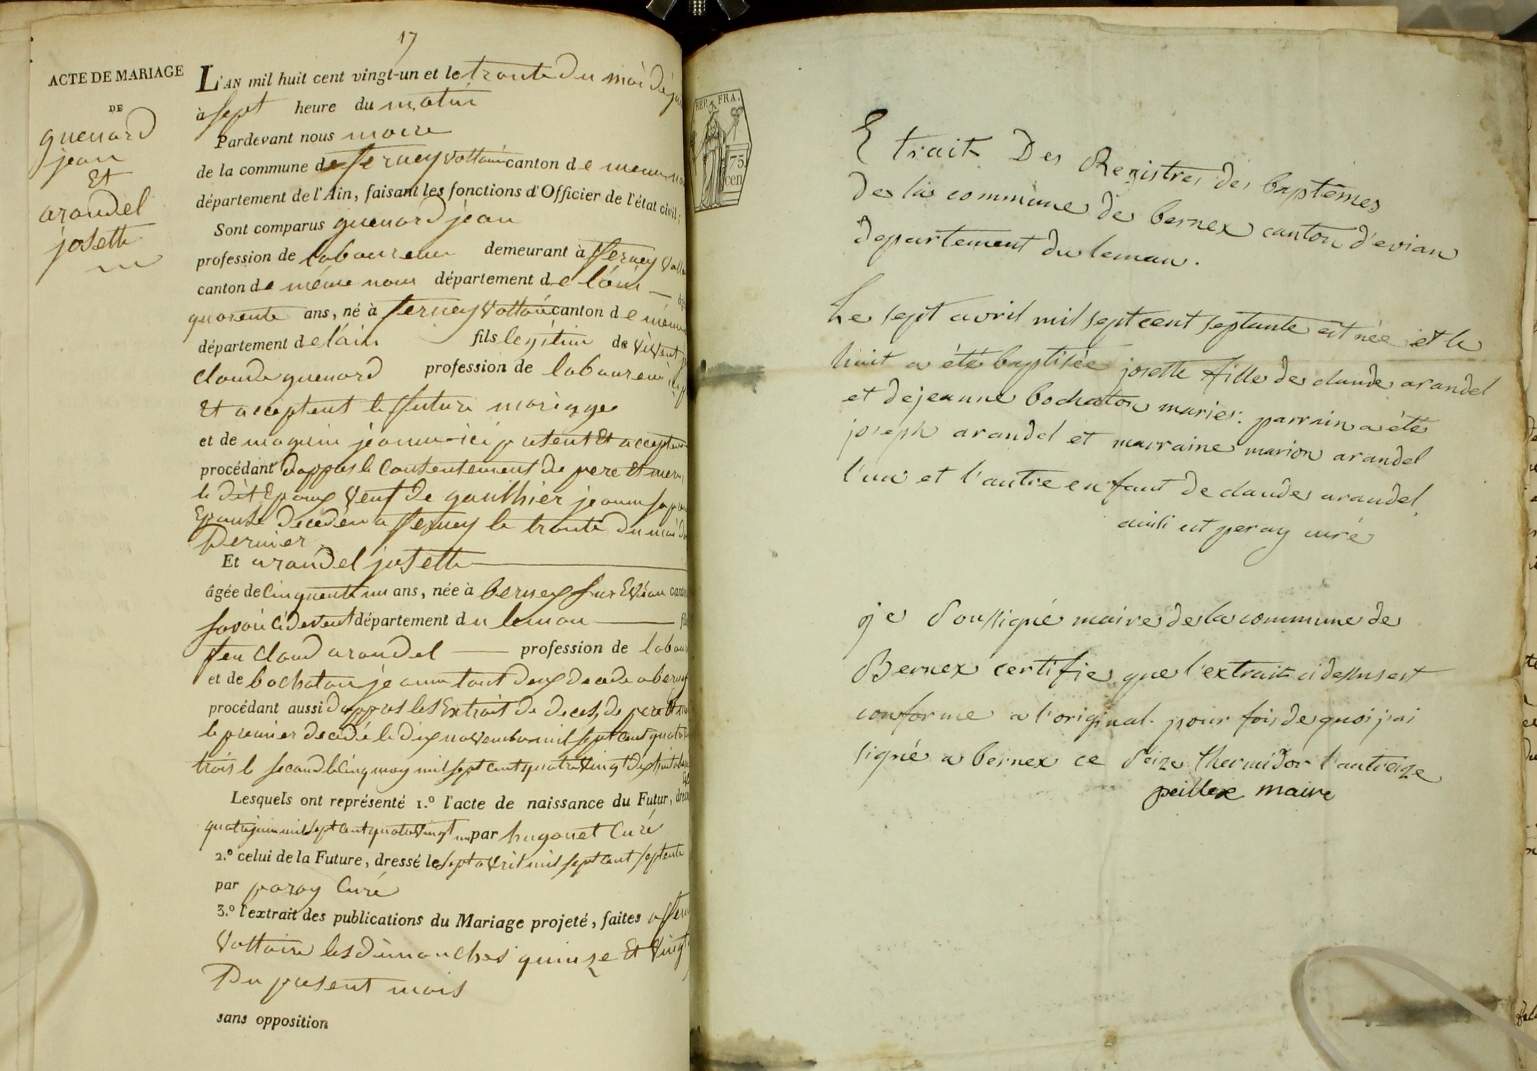 17
ACTE DE MARIAGE
DE
guenard
jean
Et
arandel
josette
L'AN mil huit cent vingt-un et le trante du moi de
à sept heure du matin
Pardevant nous maire
de la commune de ferney voltaire canton de meme
département de l'Ain, faisant les fonctions d'Officier de l'état civil,
Sont comparus guenard jean
profession de laboureur demeurant à ferney
canton de même nom département de l'ain
quarente ans, né à ferney voltaire canton de même
département de l'ain fils legitim de vivent
claude guenard profession de laboureur
Et acceptent le futur mariage
et de maguin jeanne ici present Et acceptent
procédant d'appres le consentement de pere Et mere
le dit Epoux veuf de gauthier jeanne
Epouse décédée a ferney le trante du mois
Dernier
Et arandel josette
âgée de cinquante un ans, née à bernex sur Evian
savoie ci devent département du leman
feu claud arandel profession de
et de bochaton jeanne tout deux décédé a
procédant aussi d'appres les Extrait de deces, de pere
le premier décédé le dix novembre mil sept cent quatre
trois le second le cinq may mil sept cent quatre vingt dix huit
Lesquels ont représenté 1.° l'acte de naissance du Futur,
quatre juin mil sept cent quatre vingt un par hugonet Curé
2.° celui de la Future, dressé le sept avril mil sept cent septente
par peray Curé
3.° l'extrait des publications du Mariage projeté, faites a
Voltaire les dimanches quinze Et vingt
Du present mois
sans opposition
REP. FRA.
75.
cen
Extrait Des Registres des baptêmes
de la commune de bernex canton d'evian
departement du leman.
Le sept avril mil sept cent septante est née et le
huit a été baptisée josette fille de claude arandel
et de jeanne bochaton mariés: parrain a été
joseph arandel et marraine marion arandel
l'un et l'autre enfant de claude arandel.
ainsi est peray curé
je soussigné maire de la commune de
Bernex certifie que l'extrait ci dessus est
conforme a l'original. pour foi de quoi j'ai
signé a bernex ce seize thermidor l'an treize
peillex maire